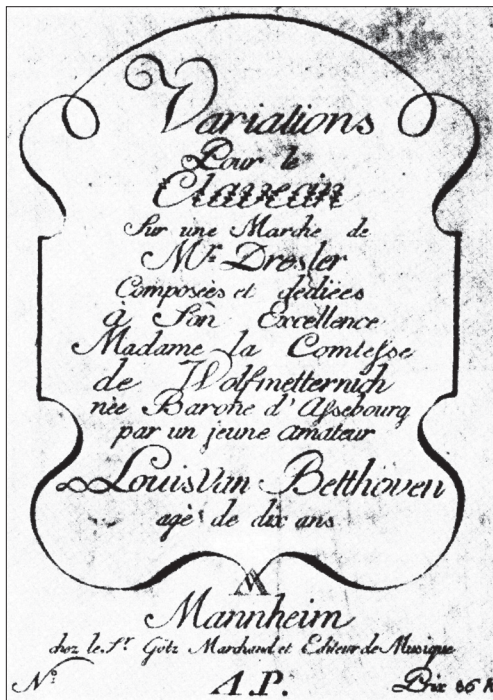 Variations
Pour le
Clavecin
Sur une Marche de
Mr. Dresler
Composées et dediées
à Son Excellence
Madame la Comtesse
de Wolfmetternich
née Barone d'Assebourg
par un jeune amateur
Louis Van Betthoven
agè de dix ans
Mannheim
chez le Sr. Götz Marchand et Editeur de Musique
No. A.P. Prix 36